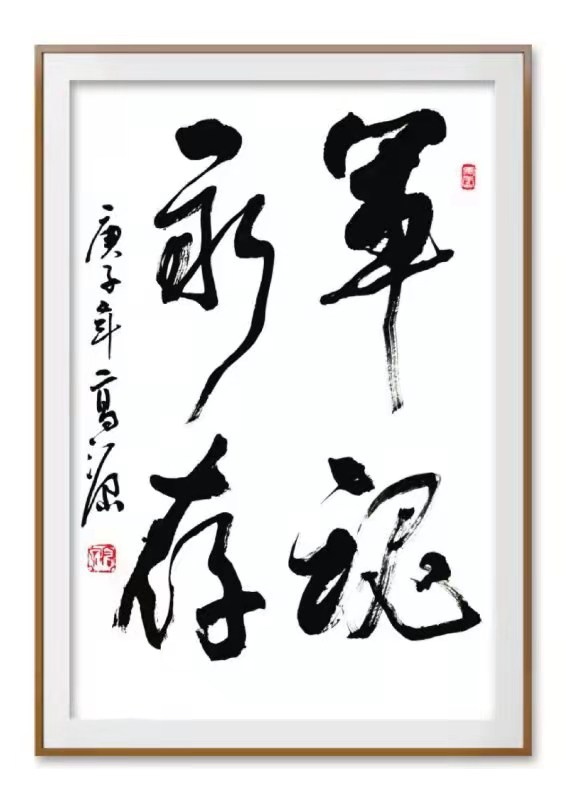 军魂
永存
庚子年高源